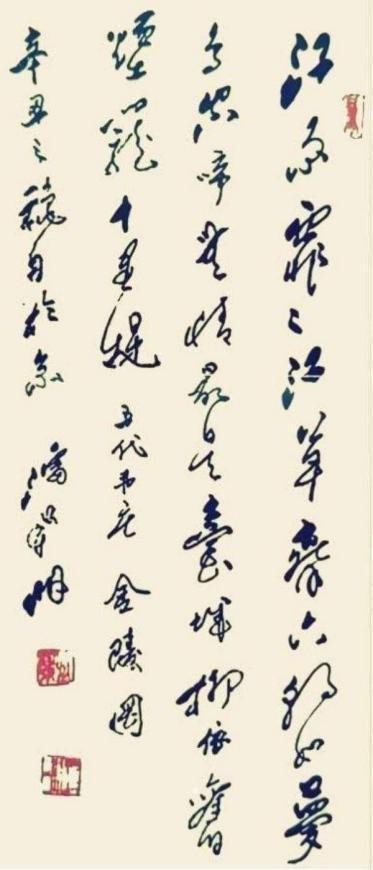 江雨霏〻江草齊六朝如夢
鳥空啼無情最是臺城柳依舊
煙籠十里堤 五代韋莊 金陵圖
辛丑之龝月於京 潘